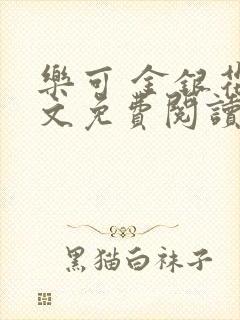 樂可 金銀花
文免費閱讀
黑猫白袜子